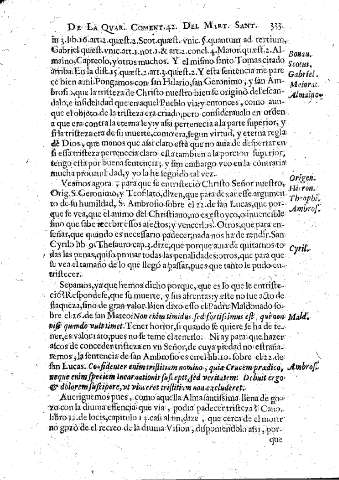 DE LA QVAR. COMENT. 42. DEL MART. SANT. 323.
in 3. lib. 16. art. 2. quæst. 2. Scot. quæst. vnic. §. quantum ad tertium,
Gabriel quæst. vnic. art. 3. not. 3. & art. 2. concl. 4. Maior. quæst. 2. Al-
maino, Capreolo, y otros muchos. Y el mismo santo Tomas citado
arriba. En la dist. 15. quæst. 2. art. 3. quæst. 2. Y esta sentencia me pare
ce bien assi. Pongamos con San Hilario, san Geronimo, y san Am-
brosi o, que la tristeza de Christo nuestro bien se originò del escan-
dalo, e infidelidad que en aquel Pueblo via, y entonces, como aun-
que el objeto de la tristeza era criado, pero consideraualo en orden
a que era contra la eterna ley y assi pertenecia a la parte superior, y
si la tristeza era de su muerte, como era, segun virtud, y eterna regla
dē Dios, que menos que assi claro està que no auia de despertar en
si essa tristeza pertenecia claro està tambien a la porcion superior,
tengo esta por buena sentencia; y sin embargo veo en la contraria
mucha probabilidad, y yo la he seguido tal vez.
Veamos agora, y para que se entristeciò Christo Señor nuestro,
Orig. S. Geronimo, y Teofilato, dizen, que para dexar esse argumen
to de su humildad, S. Ambrosio sobre el 22. de san Lucas, que por-
que se vea, que el animo del Christiano, no es estoyco, o inuencible
sino que sabe recebir essos aietos, y vencerlos. Otros, que para en-
señar, que quando es necessario padecer, nada nos ha de rendir. San
Cyrilo lib. 9. Thesauro cap. 3. dize, que porque auia de quitarnos to-
das las penas, quiso prouar todas las penalidades: otros, que para que
se vea el tamaño de lo que llegò a passar, pues que tanto le pudo en-
tristecer.
Sepamos, ya que hemos dicho porque, que es lo que le entriste-
ciò? Responde se, que su muerte, y sus afrentas: y este no fue acto de
flaqueza, sino de gran valor. Bien dixo esto el Padre Maldonado so-
bre el 26. de san Mateo: Non enim timidus, sed fortissimus est, qui non
nisi quando vult timet. Tener horror, si quando se quiere se ha de te-
ner, es valor raro, pues no se teme el tenerlo. Ni ay para que hazer
ascos de conceder tristeza en vn Señor, de cuya piedad no estraña-
remos, la sentencia de san Ambrosio es cierto lib. 10. sobre el 22. de
san Lucas. Confidenter enim tristitiam nomino, quia Crucem prædico,
neque enim speciem incarnationis suscepit, sed veritatem. Debuit ergo
& dolorem suscipere, vt vinceret tristitiam non excluderet.
Aueriguemos pues, como aquella Alma santissima llena de go-
zo con la diuina essencia que via, podia padecer tristeza? Cano,
libro 12. de locis, capitulo 13. casi al fin, dize, que cerca de morir
no gozò de el recreo de la diuina Vision, disponiendolo assi, por-
que
Bonau.
Scotus,
Gabriel.
Maiorz.
Almaino.
Origen.
Hieron.
Theophi.
Ambros.
Cyril.
Mald.
Ambros.